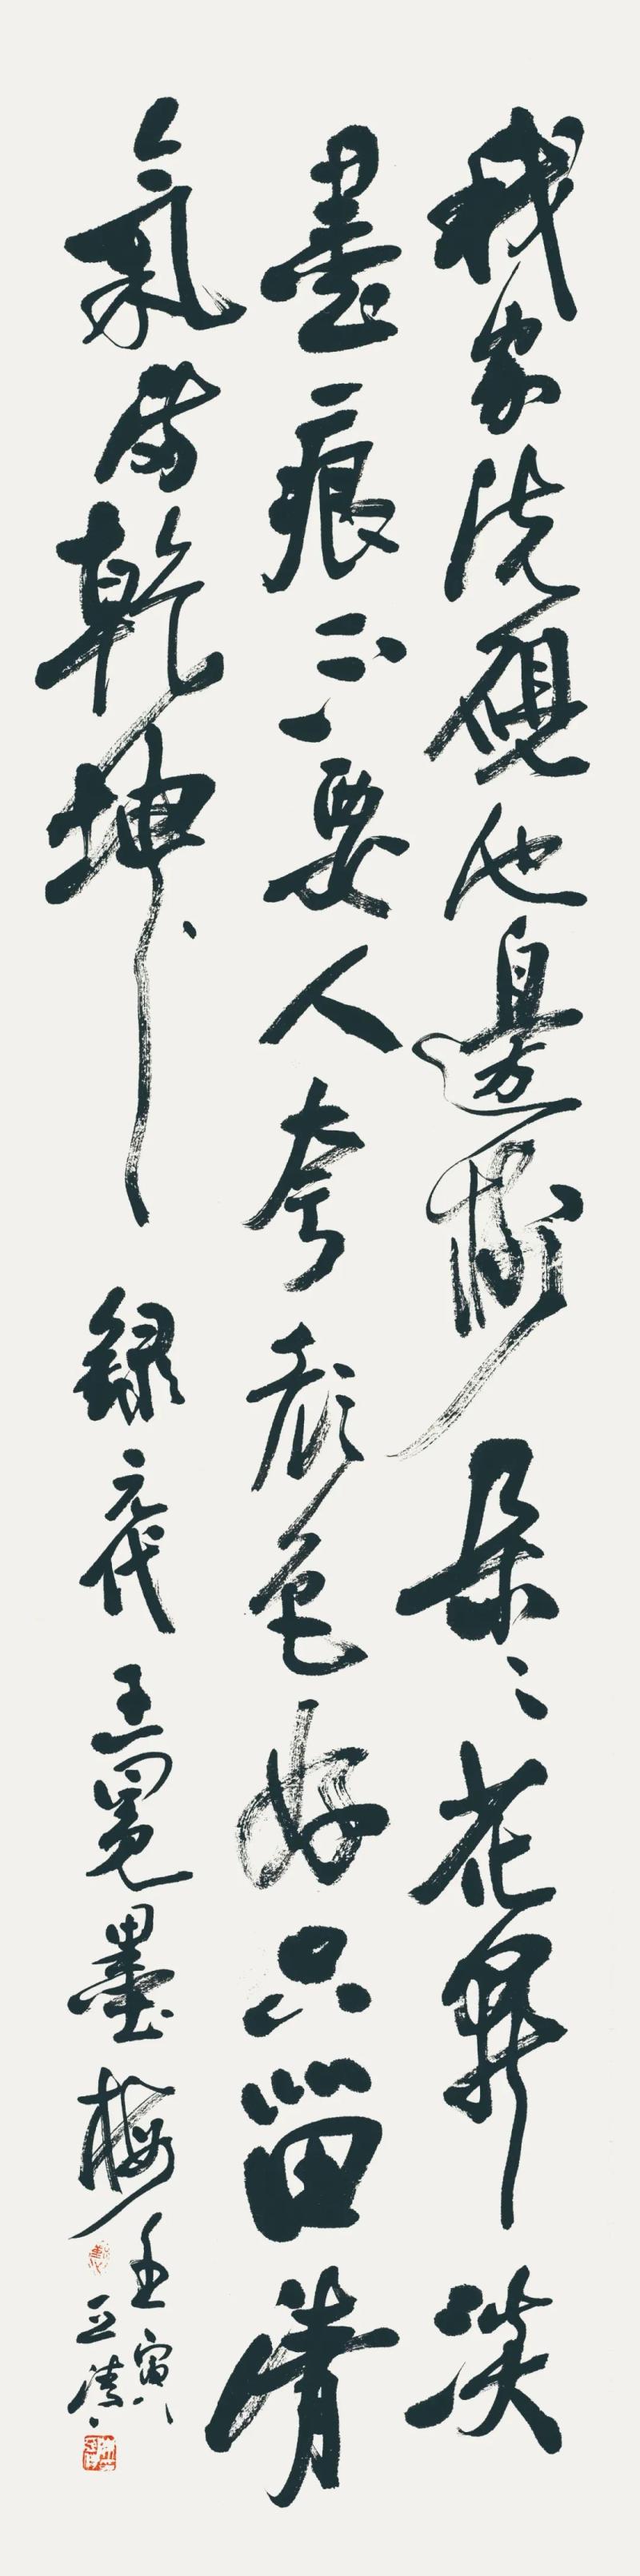 我家洗硯池邊樹朵〻花開淡
墨痕不要人夸顔色好只留清
氣滿乾坤 錄元代王冕墨梅 壬寅